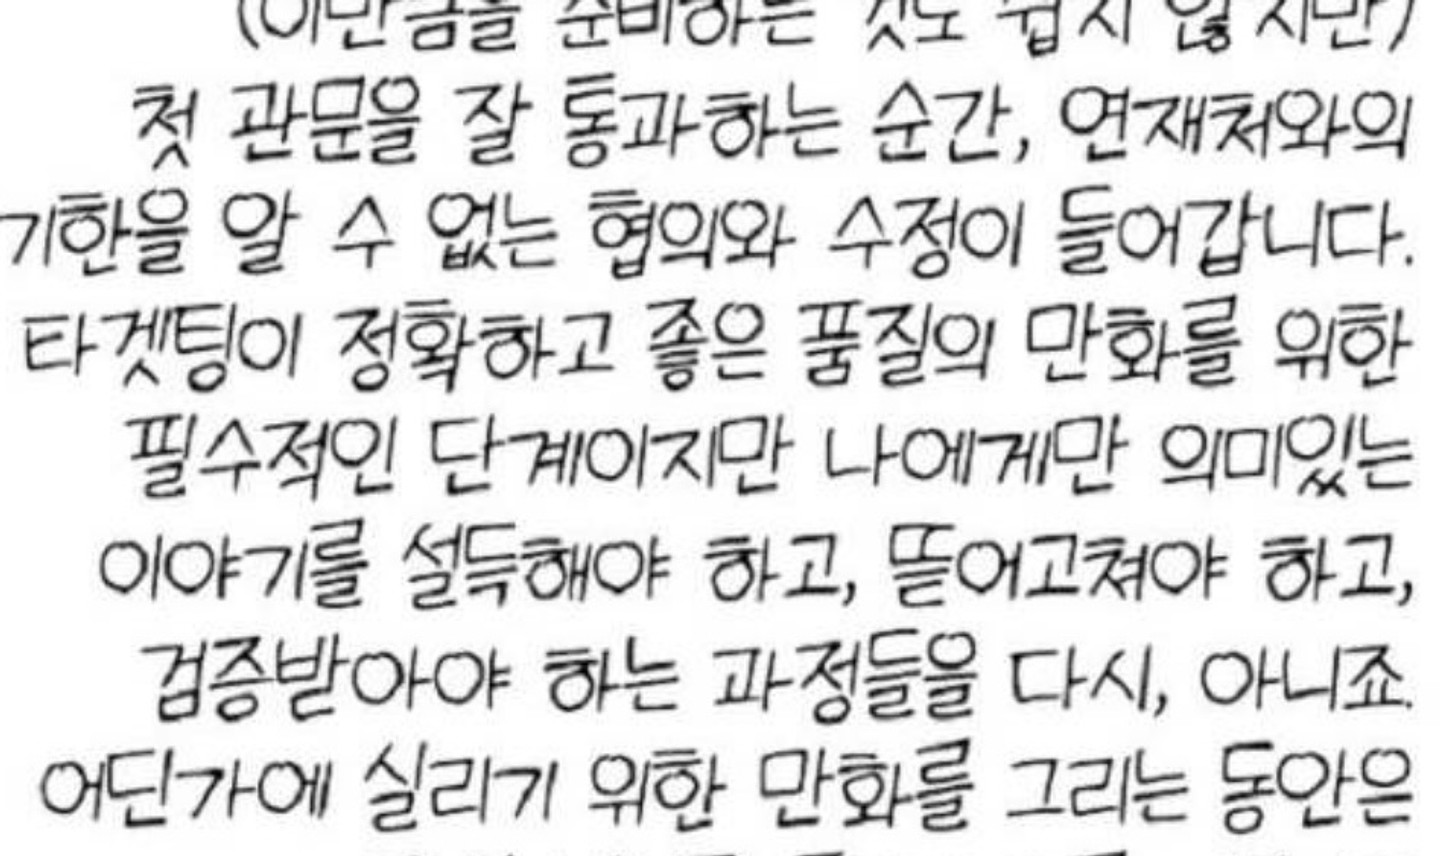 (이만큼을 준비하는 것도 쉽지 않지만)
첫 관문을 잘 통과하는 순간, 연재처와의
기한을 알 수 없는 협의와 수정이 들어갑니다.
타겟팅이 정확하고 좋은 품질의 만화를 위한
필수적인 단계이지만 나에게만 의미있는
이야기를 설득해야 하고, 뜯어고쳐야 하고,
검증받아야 하는 과정들을 다시, 아니죠.
어딘가에 실리기 위한 만화를 그리는 동안은